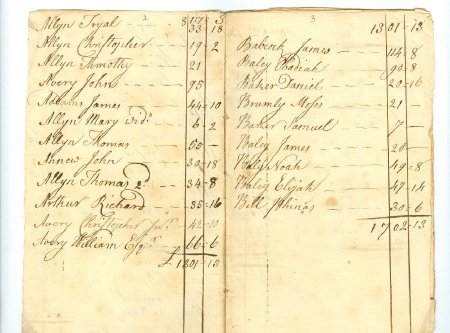 2
8 17 3
Allyn Tryal 33 18
Allyn Christopher 19 2
Allyn Timothy 21
Avery John 95
Adams James 44 10
Allyn Mary Wido 6 2
Allyn Thomas 55
Annew John 30 18
Allyn Thomas 2d 34 8
Arthur Richard 35 16
Avery Christopher 42 11
Avery William Esqr 66 6
£ 1301 13
3
13 01 13
Babcock James 114 8
Baley Obadiah 90 8
Baker Daniel 20 16
Brumly Moses 21
Baker Samuel 7
Baley James 20
Baly Noah 49 8
Baley Elijah 47 14
Bill Phinias 30 6
1702 13